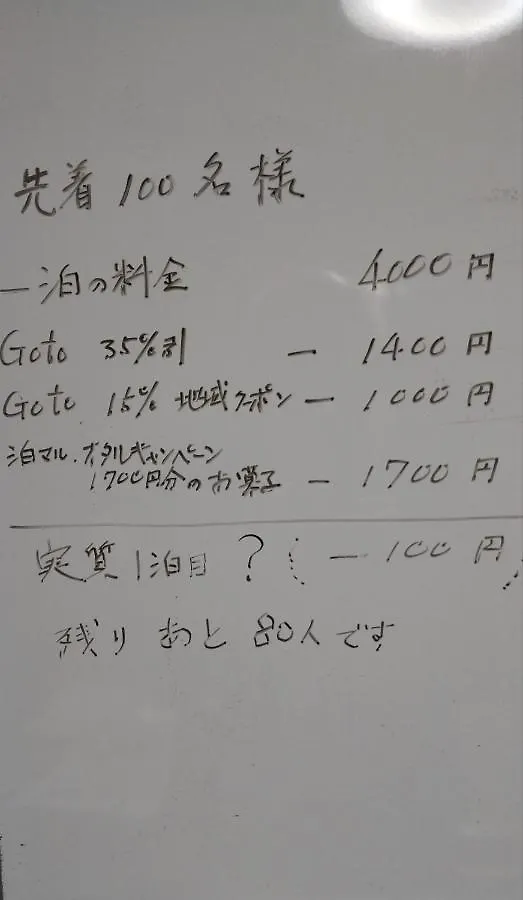 先着100名様
一泊の料金 4000円
Goto 35%割 - 1400円
Goto 15% 地域クーポン - 1000円
泊マル.オタルキャンペーン
1700円分のお菓子 - 1700円
実質1泊目 ? (-100円)
残りあと80人です